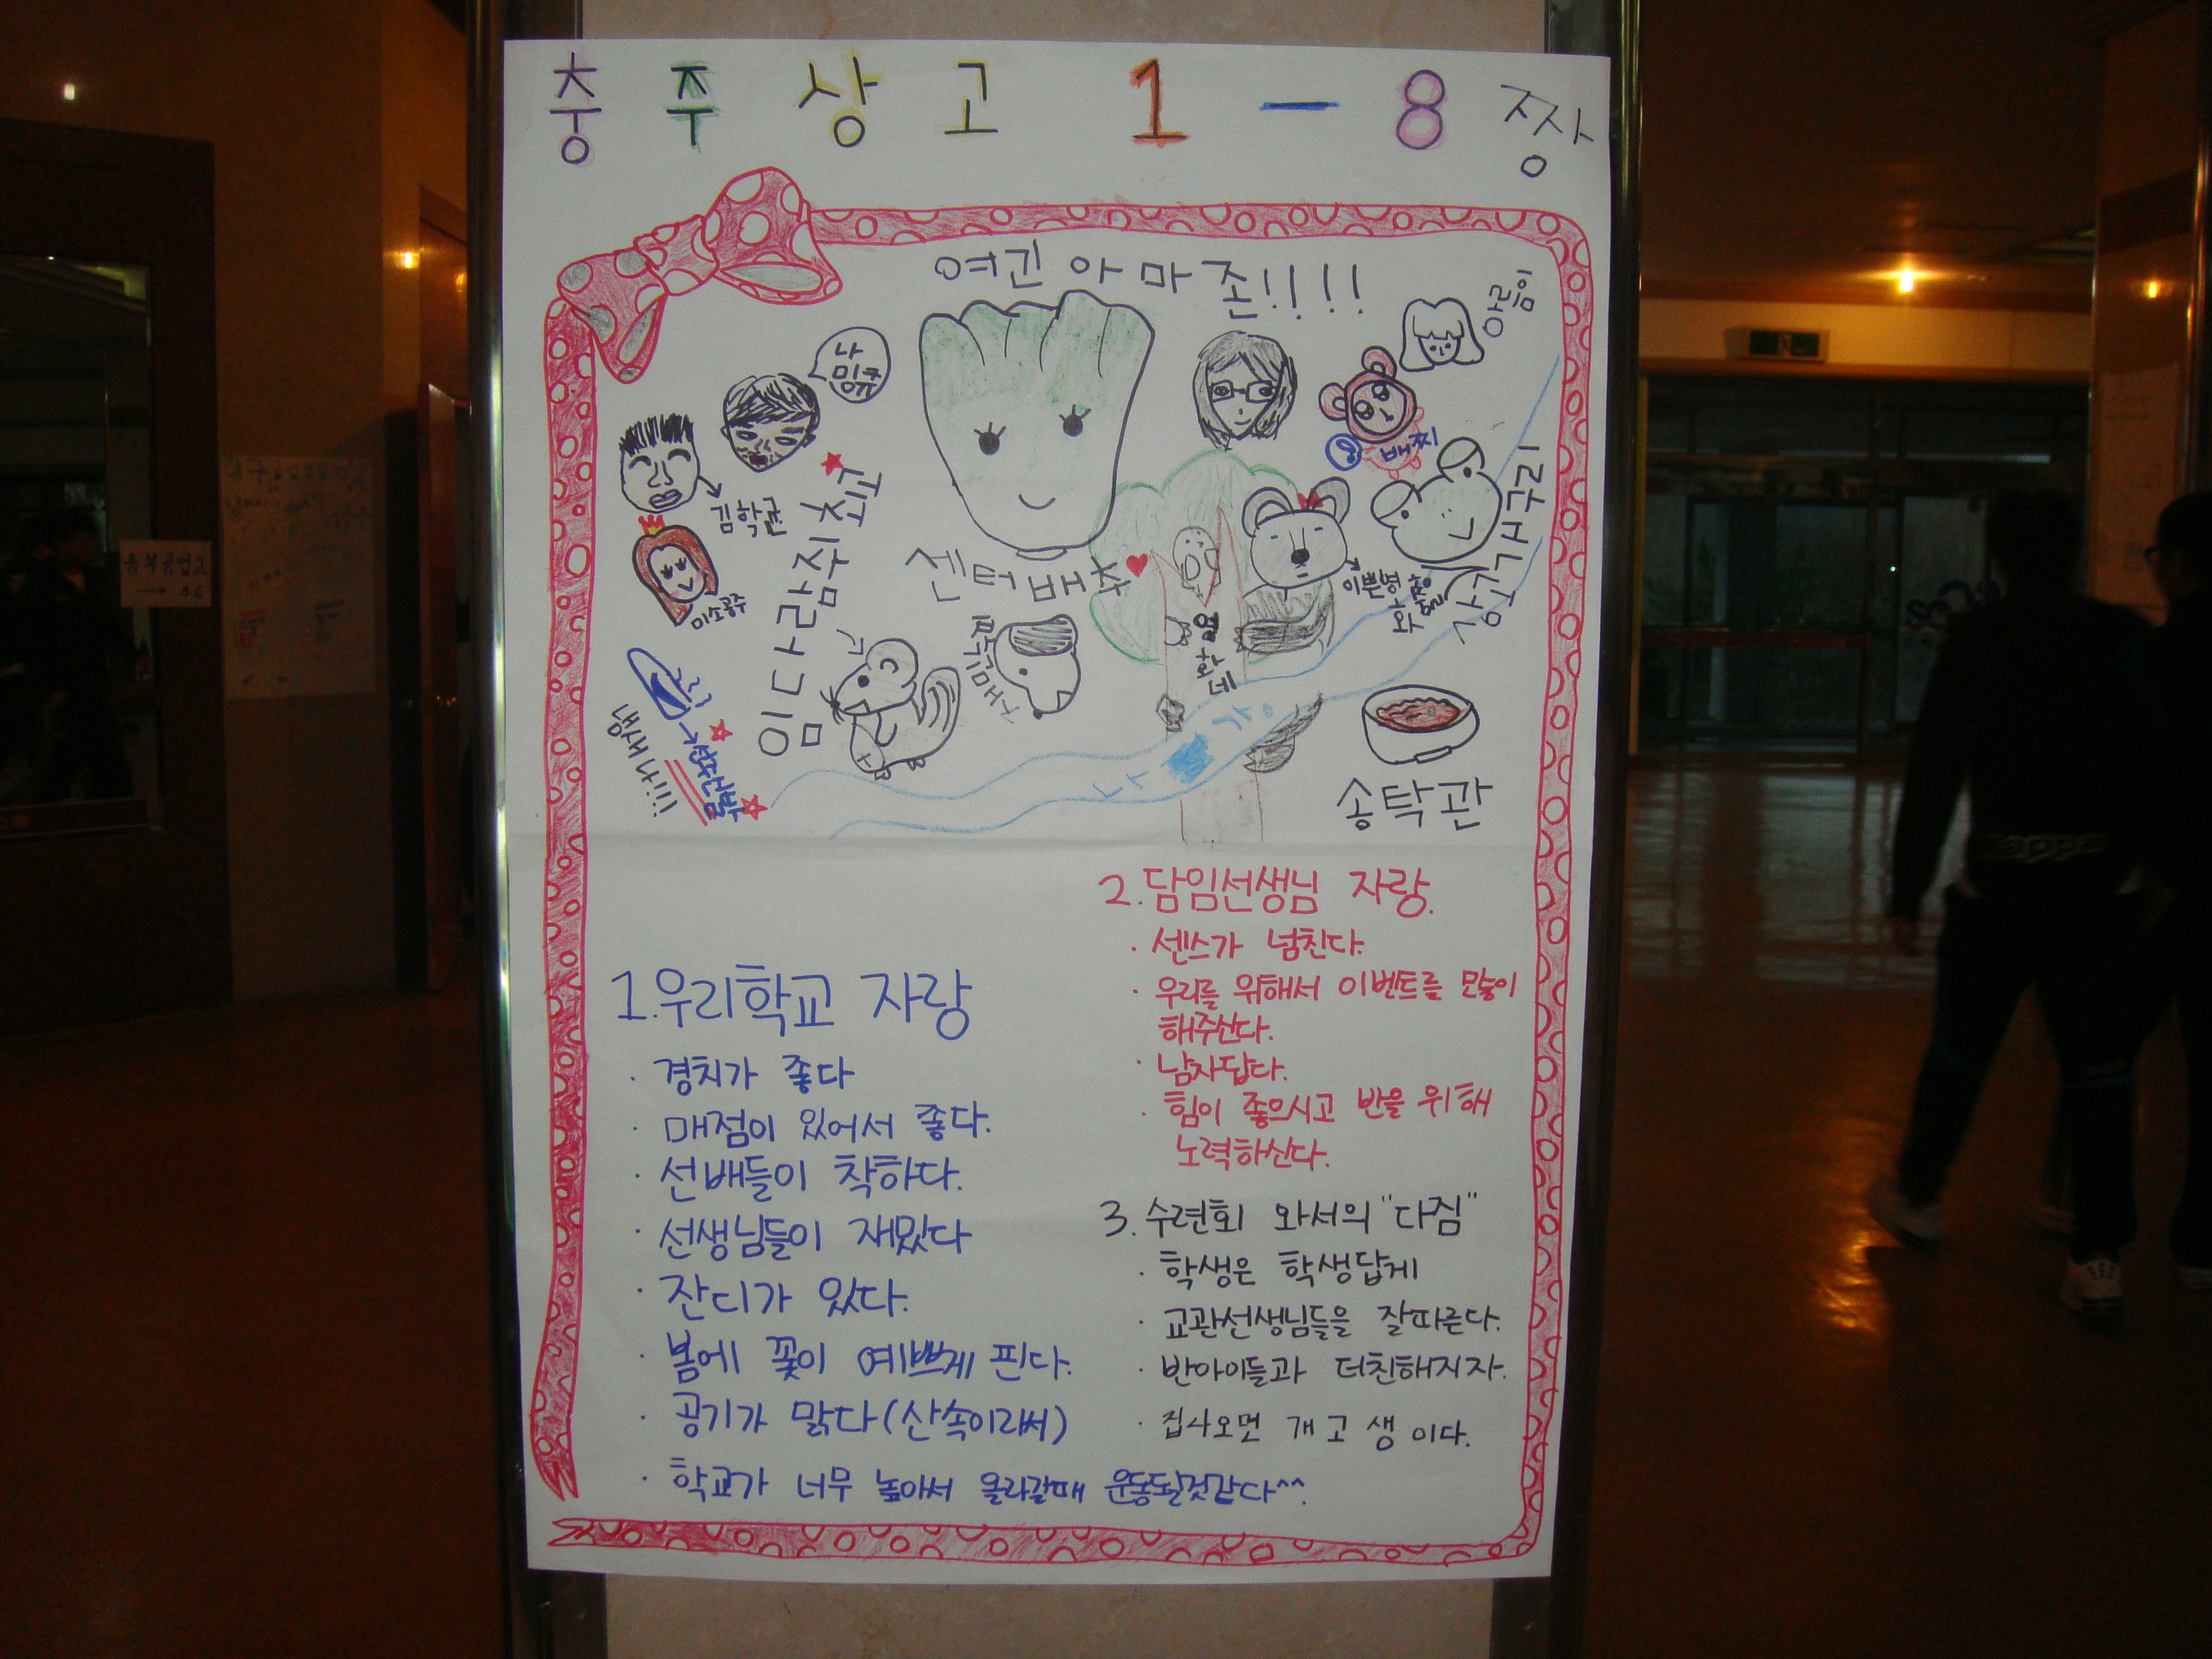 충주상고 1-8 짱
여긴 아마존!!!!
아름이
나
밍큐
배찌
김학균
임다람쥐 최고
미소공주
센터배추
청개구리
이쁜병
열화네
뱀새끼!!!!
송탁관
1. 우리학교 자랑
· 경치가 좋다
· 매점이 있어서 좋다.
· 선배들이 착하다.
· 선생님들이 재밌다
· 잔디가 있다.
· 봄에 꽃이 예쁘게 핀다.
· 공기가 맑다(산속이라써)
· 학교가 너무 높아서 올라갈때 운동될것같다^^.
2. 담임선생님 자랑.
· 센스가 넘친다.
· 우리를 위해서 이벤트를 많이
해주신다.
· 남자답다.
· 힘이 좋으시고 반을 위해
노력하신다.
3. 수련회 와서의 "다짐"
· 학생은 학생답게
· 교관선생님들을 잘따른다.
· 반아이들과 더친해지자.
· 집나오면 개고생이다.